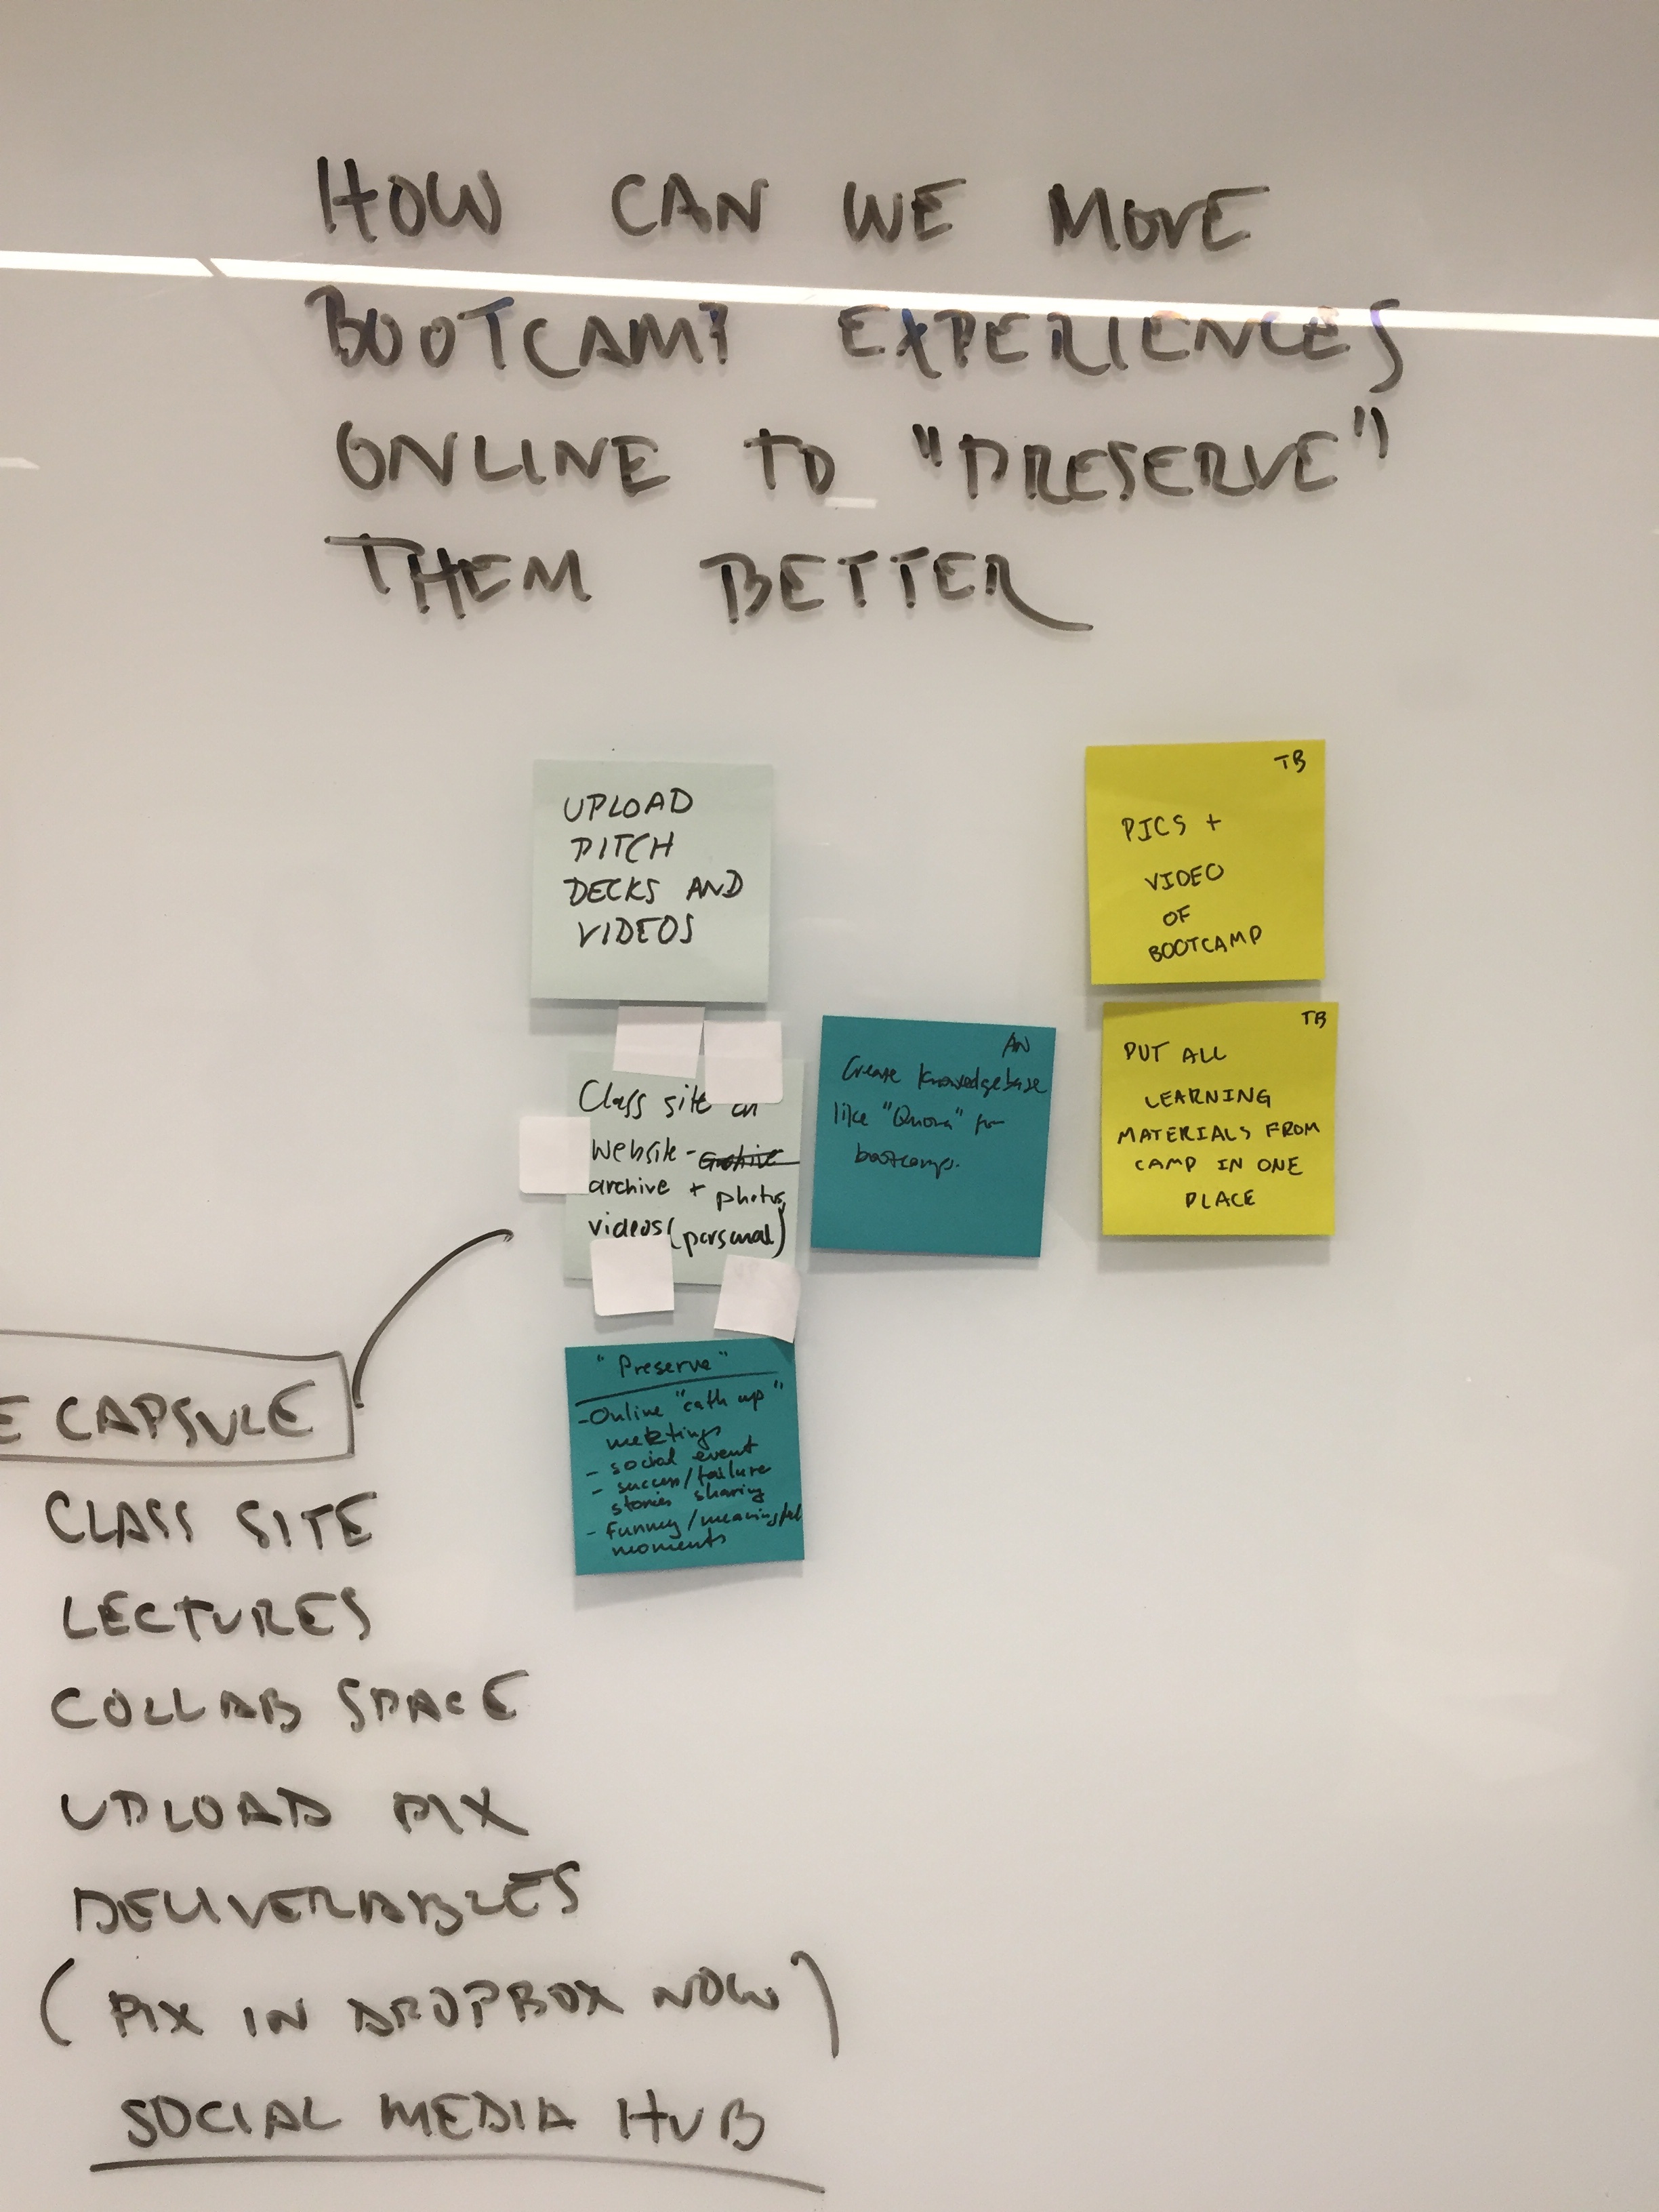 HOW CAN WE MOVE
BOOTCAMP EXPERIENCES
ONLINE TO "PRESERVE"
THEM BETTER
UPLOAD
PITCH
DECKS AND
VIDEOS
TB
PICS +
VIDEO
OF
BOOTCAMP
Class site on
website -
archive + photos,
videos (personal)
AN
Create knowledgebase
like "Quora" for
bootcamps.
TB
PUT ALL
LEARNING
MATERIALS FROM
CAMP IN ONE
PLACE
"Preserve"
- Online "cath up"
meetings
- social event
- success/failure
stories sharing
- Funny/meaningful
moments
E CAPSULE
CLASS SITE
LECTURES
COLLAB SPACE
UPLOAD PIX
DELIVERABLES
(PIX IN DROPBOX NOW)
SOCIAL MEDIA HUB